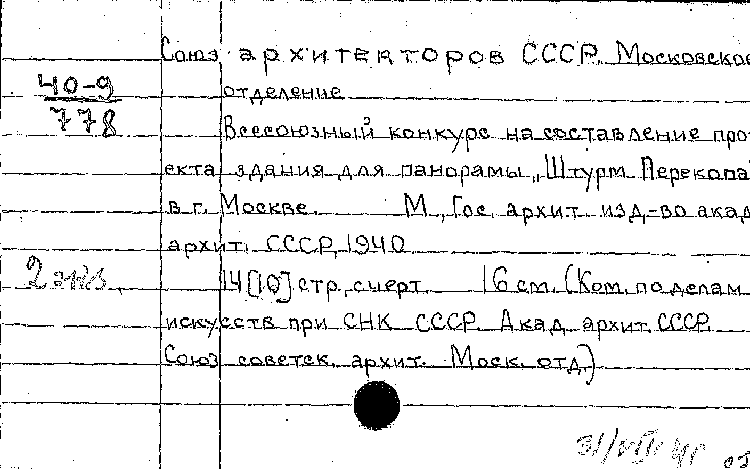 Союз архитекторов СССР. Московское
40-9
778
отделение
Всесоюзный конкурс на составление про-
екта здания для панорамы „Штурм Перекопа
в г. Москве. М., Гос. архит. изд-во акад.
архит. СССР, 1940
2 экз.
14 [10] стр., с черт. 16 см. (Ком. по делам
искусств при СНК СССР. Акад. архит. СССР.
Союз советск. архит. Моск. отд.)
31/VII 41